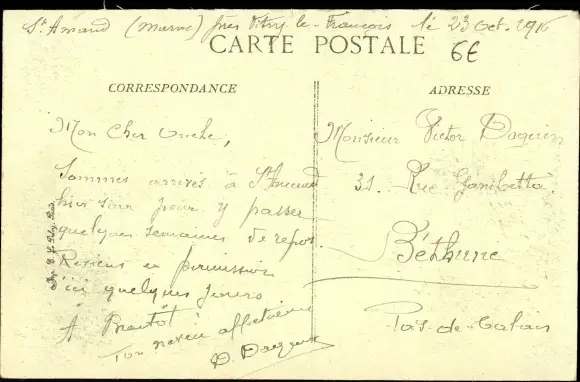 St Amand (Marne) près Vitry-le-François le 23 Oct. 1916
CARTE POSTALE
6€
CORRESPONDANCE
Mon Cher Oncle,
Sommes arrivés à St Amand
hier soir pour y passer
quelques semaines de repos.
Reviens en permission
d'ici quelques jours
A Bientôt
Ton neveu affectueux
ADRESSE
Monsieur Victor Daquin
31. Rue Gambetta
Béthune
Pas-de-Calais